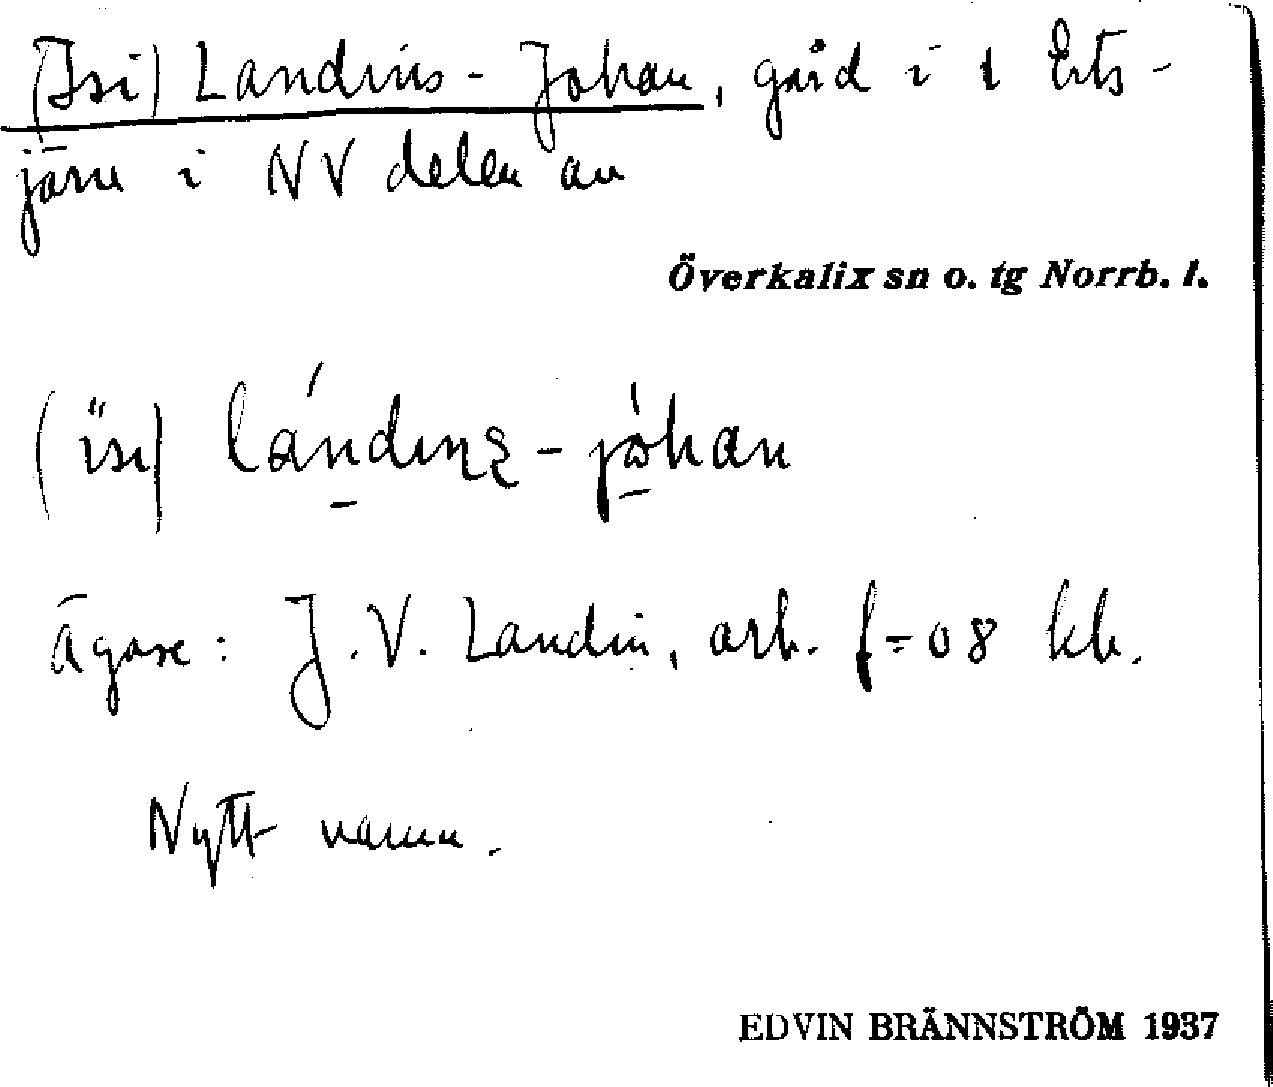 (Isi) Landins-Johan, gård i t Ets-
järv i NV delen av
Överkalix sn o. tg Norrb. l.
(ïsi) lándins-jòhan
Ägare: J. V. Landin, arb. f=08 kb.
Nytt namn.
EDVIN BRÄNNSTRÖM 1937